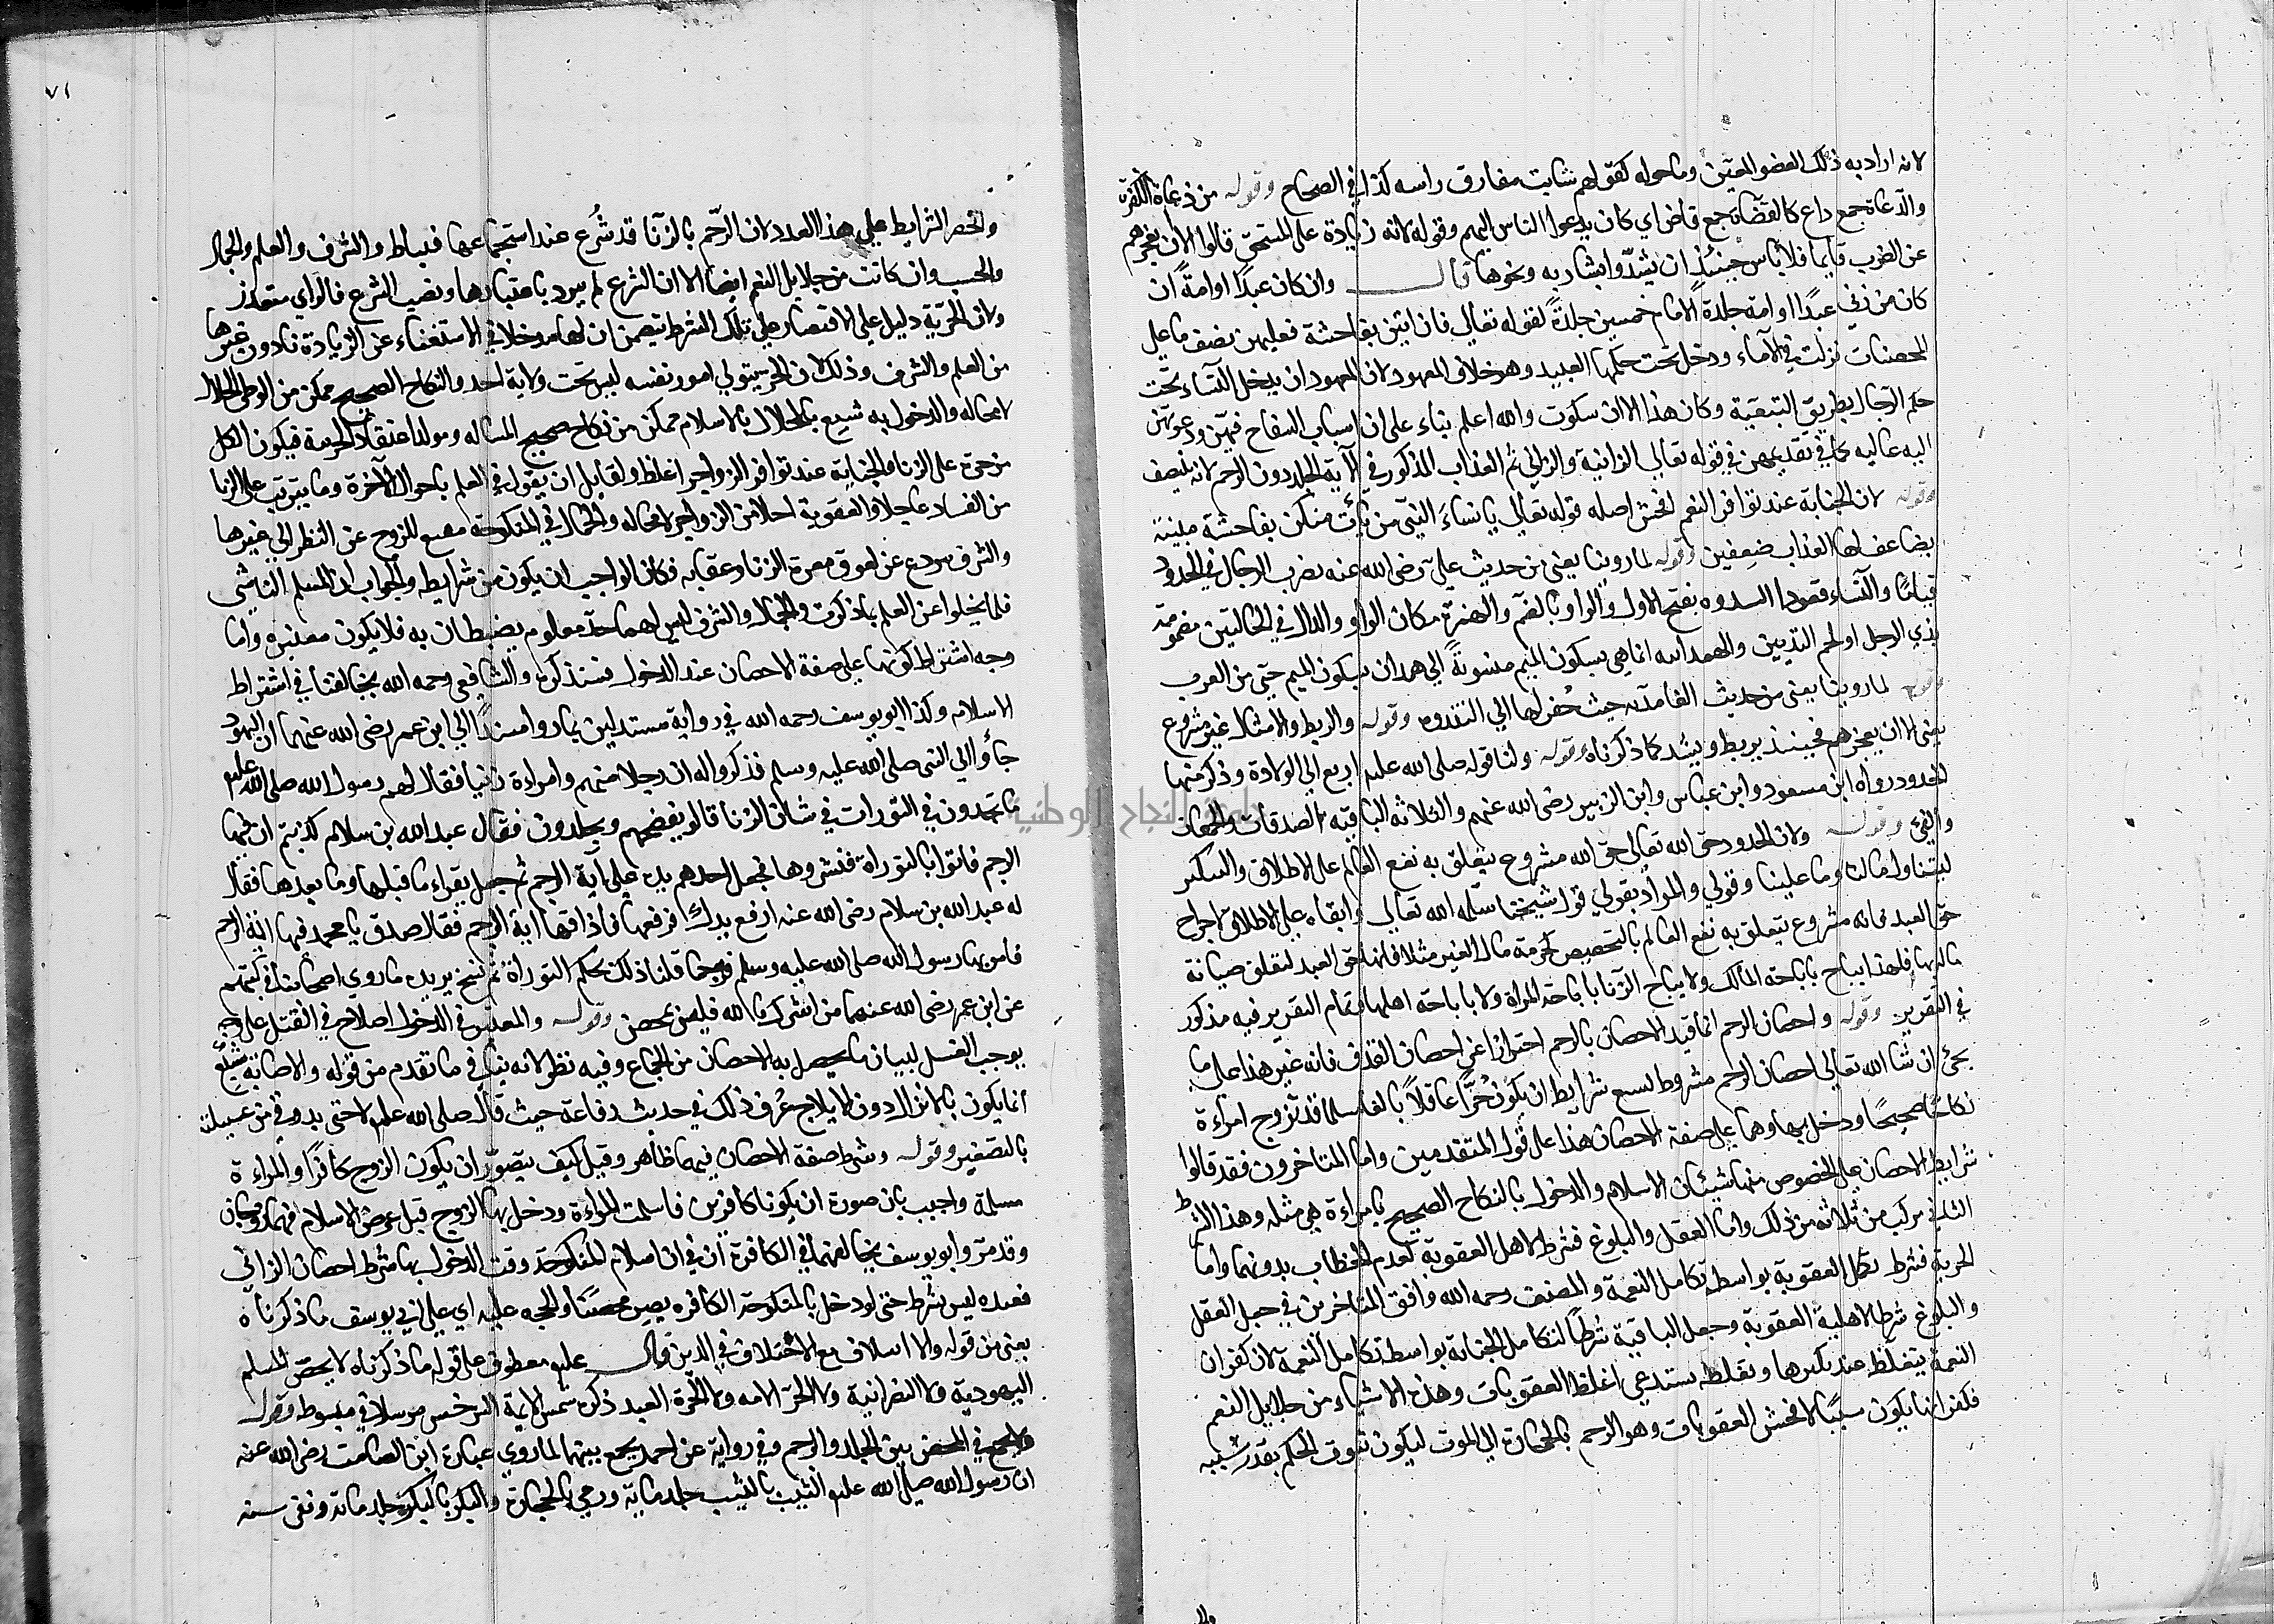 لانه اراد به ذلك العضو المعين وما حوله كقولهم شابت مفارق راسه كذا في الصحاح وقوله من دعاة الكفرة
والدعاة جمع داع كالقضاة جمع قاض اي كان يدعوا الناس اليهم وقوله لانه زيادة على المستحق قالوا الا ان يعجزهم
عن الضرب قايما فلا باس حينئذ ان يشدوا بسارية ونحوها قال وان كان عبدا او امة ان
كان من زني عبدا او امة جلدة الامام خمسين جلدة لقوله تعالي فان اتين بفاحشة فعليهن نصف ما علي
المحصنات نزلت في الاماء ودخل تحت حكمها العبيد وهو خلاف المعهود لان المعهود ان يدخل النساء تحت
حكم الرجال بطريق التبعية وكان هذا الا ان سكوت والله اعلم بناء على ان اسباب السفاح فيهن ودعوتهن
اليه غالبه كما في تقديمهن في قوله تعالي الزانية والزاني ثم العذاب المذكور في الآية الجلد دون الرجم لانه لا ينصف
وقوله لان الجناية عند توافر النعم افحش اصله قوله تعالي يا نساء النبي من يأت منكن بفاحشة مبينة
يضاعف لها العذاب ضعفين وقوله لما روينا يعني من حديث علي رضي الله عنه يضرب الرجال في الحدود
قياما والنساء قعودا السدوه بفتح الاول والواو بالضم والهمزة مكان الواو والدال في الحالتين مضمومة
ثدي الرجل او لحم الثديين والهمدانيه انما هي بسكون الميم منسوبة الي همدان بسكون الميم حي من العرب
وقوله لما روينا يعني من حديث الغامديه حيث حفر لها الي الثندوه وقوله والربط والامساك غير مشروع
يعني الا ان يعجزهم فحينئذ يربط ويشد كما ذكرناه وقوله ولنا قوله صلى الله عليه اربع الي الولاة وذكر منها
الحدود رواه ابن مسعود وابن عباس وابن الزبير رضى الله عنهم والثلاثه الباقيه الصدقات والجمعات
والفي وقوله ولان الحدود حق الله تعالى حق الله مشروع يتعلق به نفع العالم على الاطلاق والسكر
ليتناول ما لنا وما علينا وقولي والمراد بقولي قول شيخنا سلمه الله تعالي وابقاه علي الاطلاق لاخراج
حق العبد فانه مشروع يتعلق به نفع العالم بالتخصيص كحرمة مال الغير مثلا فانها حق العبد لتعلق صيانة
ماله بها فلهذا يباح باباحة المالك ولا يباح الزنا باباحة المراة ولا باباحة اهلها وتمام التقرير فيه مذكور
في التقرير وقوله واحصان الرجم انما قيد الاحصان بالرجم احترازا عن احصان القذف فانه غير هذا على ما
يجئ ان شا الله تعالي احصان الرجم مشروط لسبع شرايط ان يكون حرا عاقلا بالغا مسلما قد تزوج امراءة
نكاحا صحيحا ودخل بها وهما على صفة الاحصان هذا على قول المتقدمين واما المتاخرون فقد قالوا
شرايط الاحصان علي الخصوص منها شيئان الاسلام والدخول بالنكاح الصحيح بامراءة هي مثله وهذا الشرط
الثاني مركب من ثلاثه من ذلك واما العقل والبلوغ فشرط لاهل العقوبة لعدم الخطاب بدونهما واما
الحرية فشرط تكمل العقوبة بواسطة تكامل النعمة والمصنف رحمه الله وافق المتاخرين في جعل العقل
والبلوغ شرطا لاهلية العقوبة وجعل الباقية شرطا لتكامل الجناية بواسطة تكامل النعمة لان كفران
النعمة يتغلظ عند تكثرها وتغلظه يستدعي اغلظ العقوبات وهذه الاشياء من جلايل النعم
فكفرانها يكون سببا لافحش العقوبات وهو الرجم بالحجارة الي الموت ليكون ثبوت الحكم بقدر سببه
وال
٧١
وانحصر الشرايط علي هذا العدد لان الرجم بالزنا قد شرع عند استجماعها فيناط والشرف والعلم والجمال
والحسب وان كانت من جلايل النعم ايضا الا ان الشرع لم يرد باعتبارها ونصب الشرع فالراي متعذر
ولان الحرية دليل علي الاقتصار علي تلك الشرط تتضمن ان لها مدخلا في الاستغناء عن الزيادة نادون غيرها
من العلم والشرف وذلك لان الحر يتولي امور نفسه ليس تحت ولاية احد والنكاح الصحيح ممكن من الوطئ الحلال
لامحاله والدخول به شبع بالحلال بالاسلام ممكن من نكاح صحيح المساله ومولد اعتقاد الحرمة فيكون الكل
مزجرة على الزنا والجناية عند توافر الزواجر اغلظ ولقايل ان يقول في العلم باحوال الآخرة وما يترتب على الزنا
من الفساد عاجلا والعقوبة اجلا من الزواجر لامحاله والجمال في المنكوحة مشبع للزوج عن النظر الي غيرها
والشرف يردع عن لحوق معرة الزنا وعقابه فكان الواجب ان يكون من شرايطه والجواب ان المسلم الناشي
قلما يخلوا عن العلم بما ذكرت والجمال والشرف ليس لهما حد معلوم يضبطان به فلا يكون معتبره واما
وجه اشتراط كونها علي صفة الاحصان عند الدخول فسنذكره والشافعي رحمه الله يخالفنا في اشتراط
الاسلام وكذا ابو يوسف رحمه الله في رواية مستدلين بما روا مسندا الي ابن عمر رضى الله عنهما ان اليهود
جاؤا الي النبي صلى الله عليه وسلم فذكروا له ان رجلا منهم وامراءة زنيا فقال لهم رسول الله صلى الله عليه
ما تجدون في التورات في شان الزنا قالوا يفضحهم ويجلدون فقال عبد الله بن سلام كذبتم ان فيها
الرجم فاتوا بالتوراة فنشروها فجعل احدهم يده علي آية الرجم ثم جعل يقراء ما قبلها وما بعدها فقال
له عبد الله بن سلام رضى الله عنه ارفع يدك فرفعها فاذا فيها اية الرجم فقال صدق يا محمد فيها آية الرجم
فامر بهما رسول الله صلى الله عليه وسلم فرجما قلنا ذلك بحكم التوراة ثم نسخ يريده ما روي اصحابنا في كتبهم
عن ابن عمر رضى الله عنهما من اشرك بالله فليس بمحصن وقوله والمعتبر في الدخول ايلاج في القبل على وجه
يوجب الغسل لبيان ما يحصل به الاحصان من الجماع وفيه نظر لانه ينافي ما تقدم من قوله والاصابة شبع
انما يكون بالانزال دون الايلاج عرف ذلك في حديث رفاعة حيث قال صلى الله عليه لا حتى يذوق من عسيلته
بالتصغير وقوله وشرط صفة الاحصان فيهما ظاهر وقيل كيف يتصور ان يكون الزوج كافرا والمراءة
مسلمة واجيب بان صورة ان يكونا كافرين فاسلمت المراءة ودخل بها الزوج قبل عرض الاسلام فهما زوجان
وقد مر وابو يوسف يخالفهما في الكافرة اي في ان اسلام المنكوحة وقت الدخول بها شرط احصان الزاني
فعنده ليس بشرط حتى لو دخل بالمنكوحة الكافره يصير محصنا والحجه عليه اي علي ابي يوسف ما ذكرناه
يعني من قوله ولا ائتلاف مع الاختلاف في الدين وقال عليه معطوف على قوله ما ذكرناه لا يحصن المسلم
اليهودية ولا النصرانية ولا الحر الامة ولا الحرة العبد ذكره شمس الايمة السرخسي مرسلا في مبسوط وقوله
ولا يجمع في المحصن بين الجلد والرجم وفي رواية عن احمد يجمع بينهما لما روي عبادة ابن الصامت رضى الله عنه
ان رسول الله صلى الله عليه الثيب بالثيب جلد ماية ورمي بالحجارة والبكر بالبكر جلد مائة ونفى سنه
جامعة النجاح الوطنية